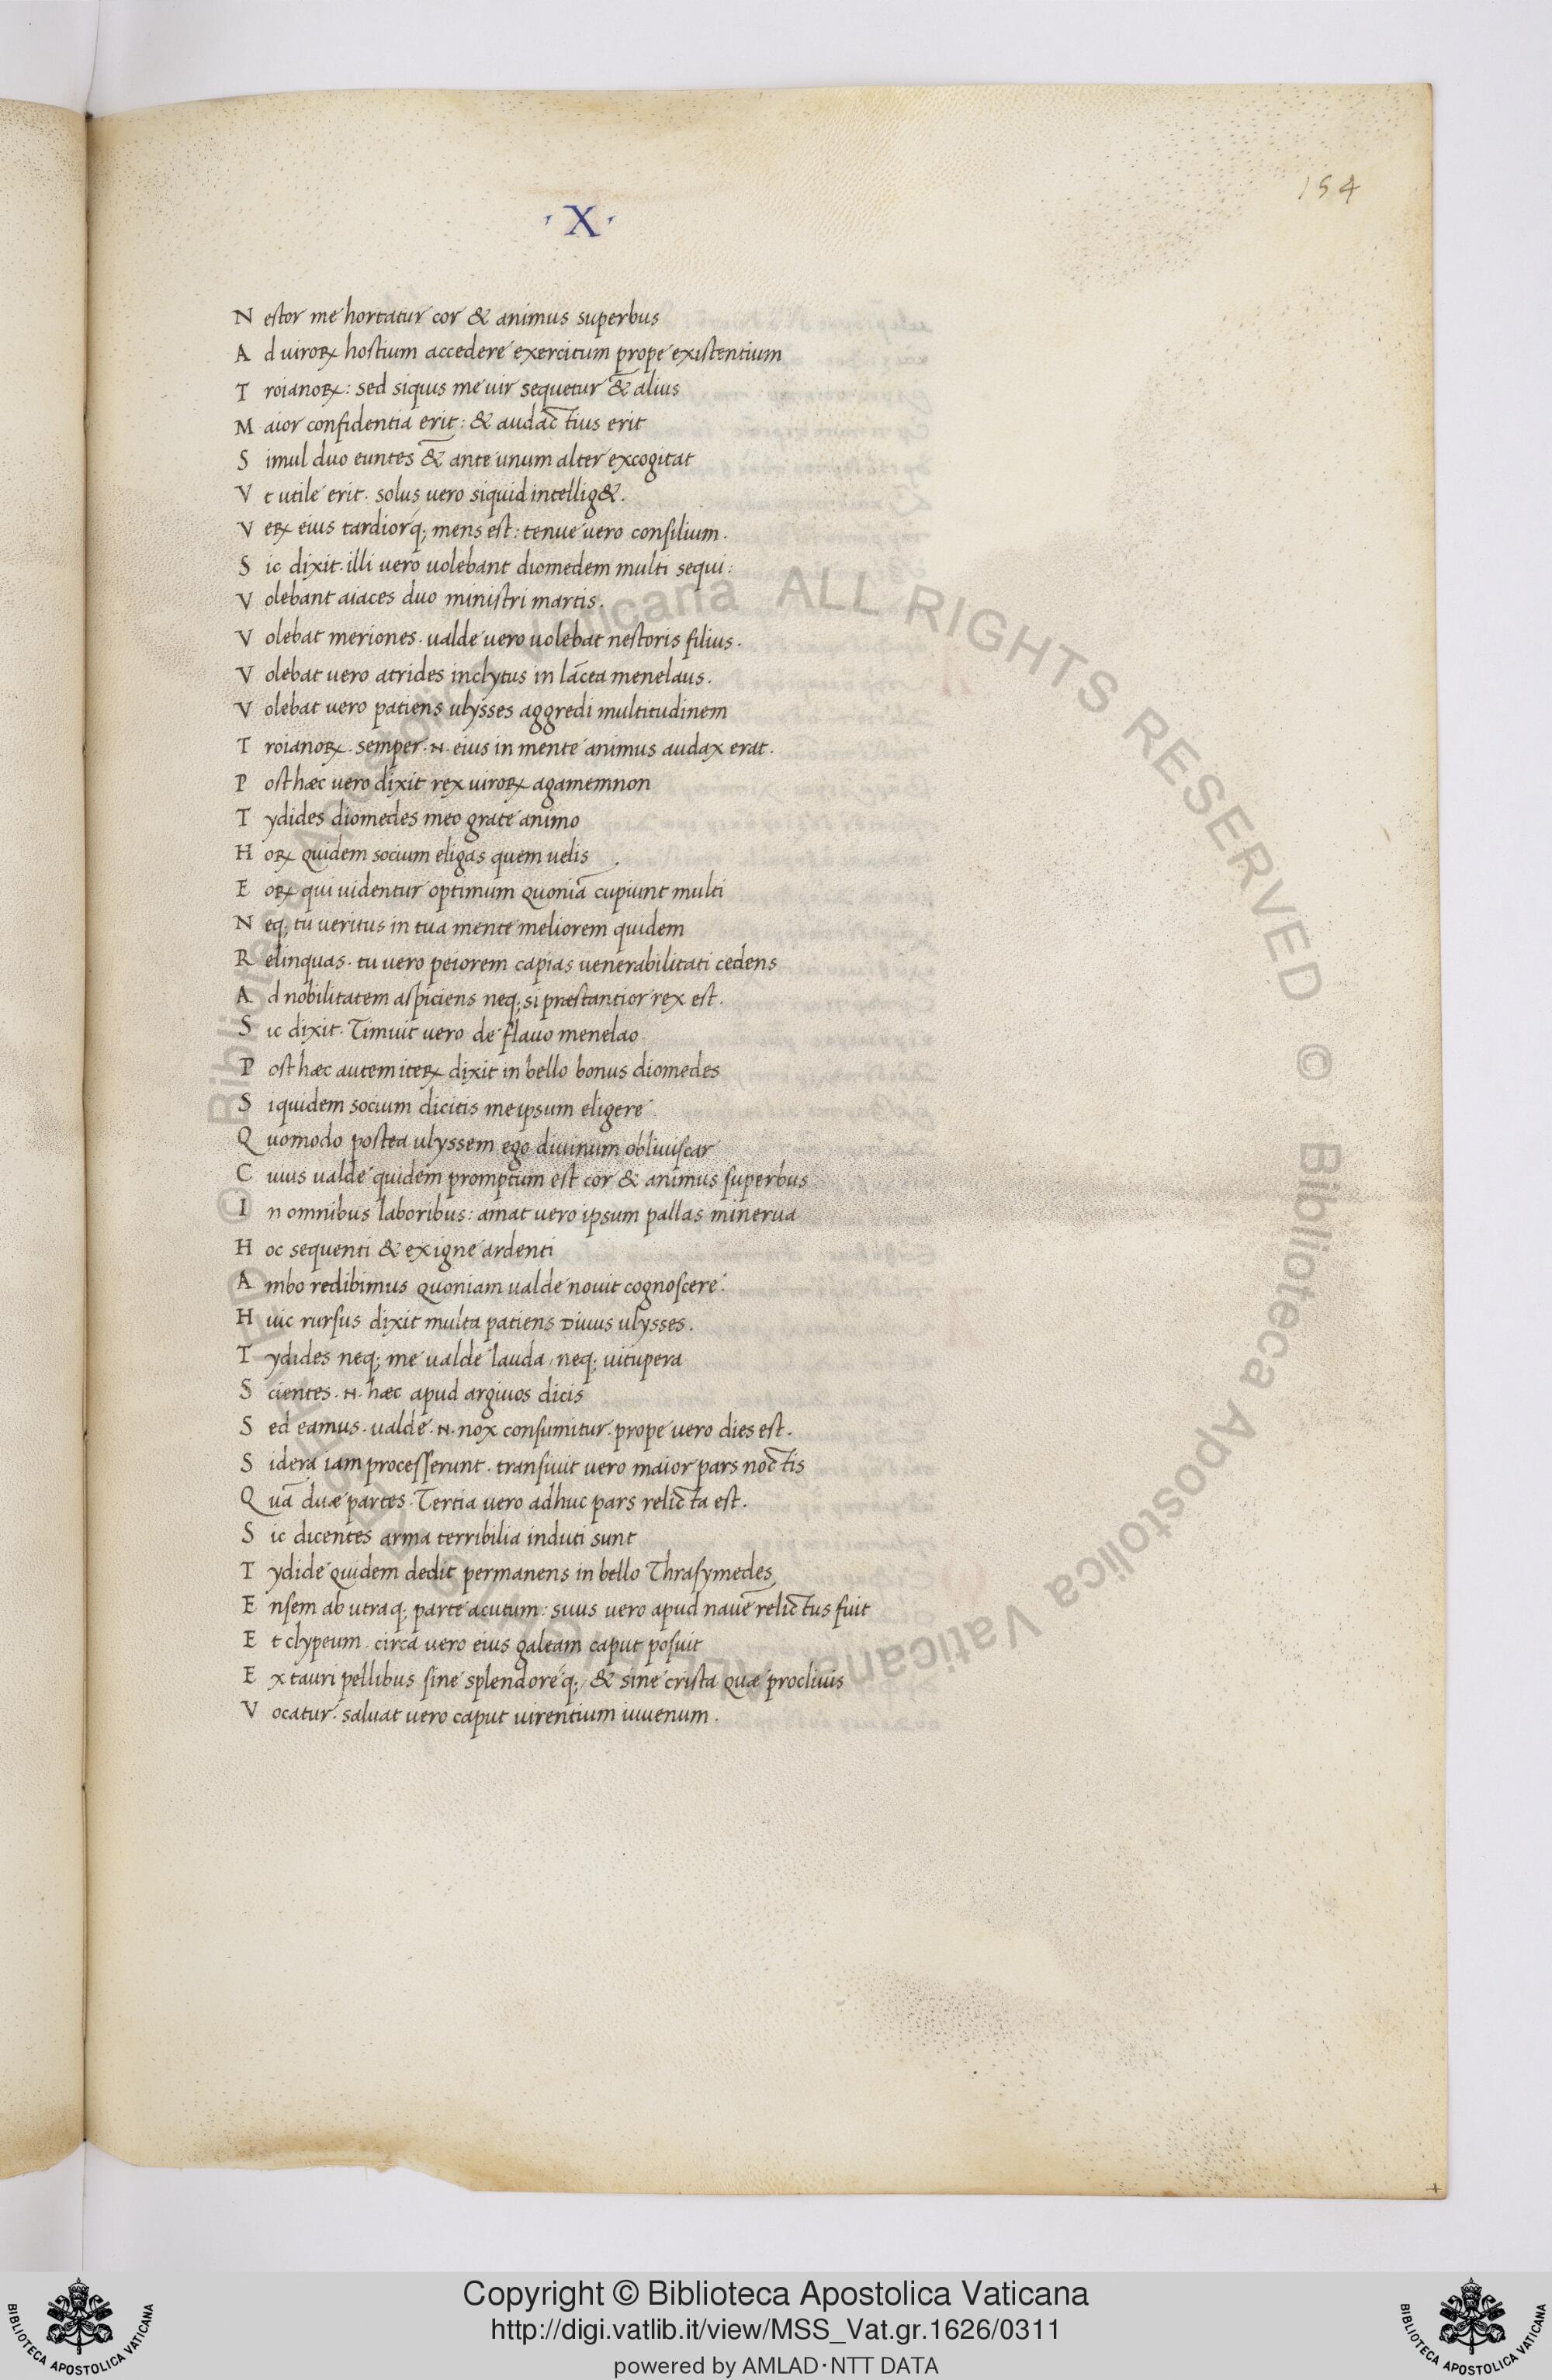 154
·X·
N estor me hortatur cor & animus superbus
A d uiroꝝ hostium accedere exercitum prope existentium
T roianoꝝ: sed siquis me uir sequetur & alius
M aior confidentia erit: & audactius erit
S imul duo euntes & ante unum alter excogitat
V t utile erit. solus uero siquid intellig&.
V eꝝ eius tardiorq; mens est: tenue uero consilium.
S ic dixit. illi uero uolebant diomedem multi sequi:
V olebant aiaces duo ministri martis.
V olebat meriones. ualde uero uolebat nestoris filius.
V olebat uero atrides inclytus in lācea menelaus.
V olebat uero patiens ulysses aggredi multitudinem
T roianoꝝ. semper .N. eius in mente animus audax erat.
P ost hæc uero dixit rex uiroꝝ agamemnon
T ydides diomedes meo grate animo
H oꝝ quidem socium eligas quem uelis .
E oꝝ qui uidentur optimum quoniā cupiunt multi
N eq; tu ueritus in tua mente meliorem quidem
R elinquas. tu uero peiorem capias uenerabilitati cedens
A d nobilitatem aspiciens neq; si præstantior rex est.
S ic dixit. Timuit uero de flauo menelao
P ost hæc autem iteꝝ dixit in bello bonus diomedes
S iquidem socium dicitis me ipsum eligere
Q uomodo postea ulyssem ego diuinum obliuiscar
C uius ualde quidem promptum est cor & animus superbus
I n omnibus laboribus: amat uero ipsum pallas minerua
H oc sequenti & ex igne ardenti
A mbo redibimus quoniam ualde nouit cognoscere.
H uic rursus dixit multa patiens Diuus ulysses.
T ydides neq; me ualde lauda, neq; uitupera
S cientes .N. hæc apud argiuos dicis
S ed eamus. ualde .N. nox consumitur. prope uero dies est.
S idera iam processerunt. transiuit uero maior pars noctis
Q uā duæ partes. Tertia uero adhuc pars relicta est.
S ic dicentes arma terribilia induti sunt
T ydide quidem dedit permanens in bello Thrasymedes
E nsem ab utraq; parte acutum: suus uero apud nauē relictus fuit
E t clypeum. circa uero eius galeam caput posuit
E x tauri pellibus sine splendoreq; & sine crista quæ procliuis
V ocatur. saluat uero caput uirentium iuuenum.
Copyright © Biblioteca Apostolica Vaticana
http://digi.vatlib.it/view/MSS_Vat.gr.1626/0311
powered by AMLAD·NTT DATA